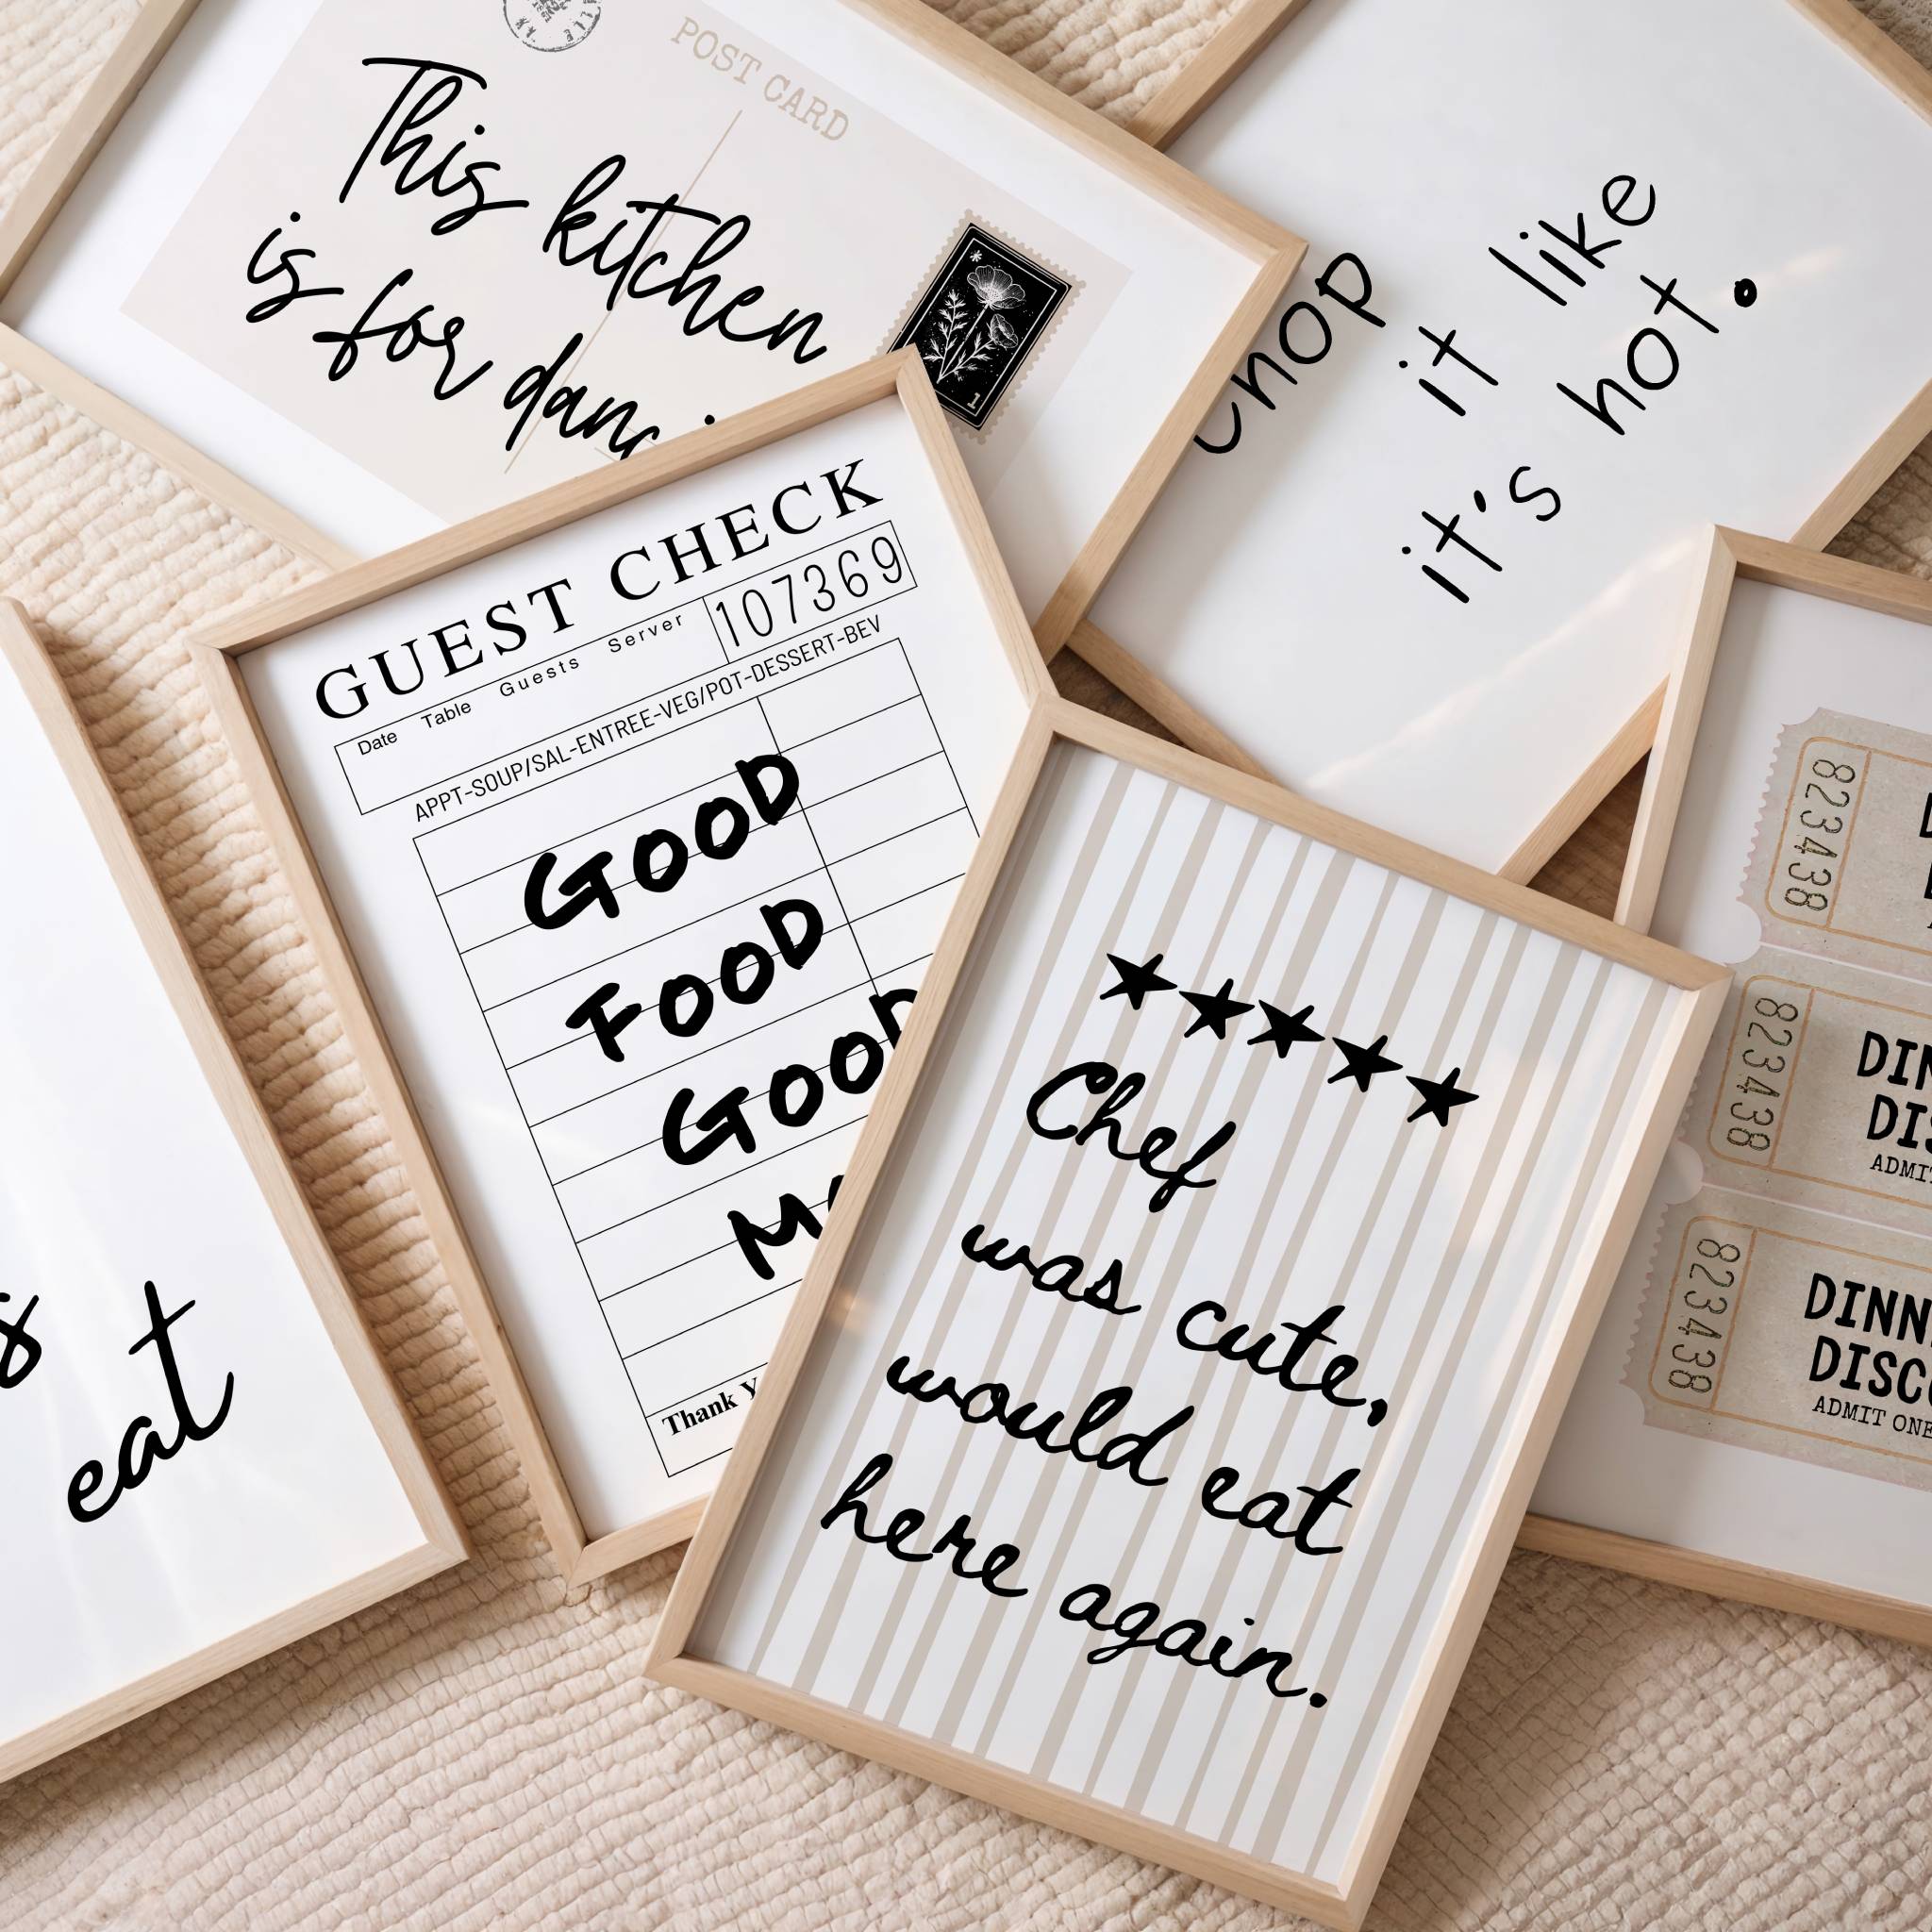 POST CARD
This kitchen
is for
1
chop
it like
it's hot.
GUEST CHECK
Date Table Guests Server 107369
APPT-SOUP/SAL-ENTREE-VEG/POT-DESSERT-BEV
GOOD
FOOD
GOOD
Thank
eat
★★★★★
Chef
was cute,
would eat
here again.
823438
823438
ADMIT
823438
ADMIT ONE